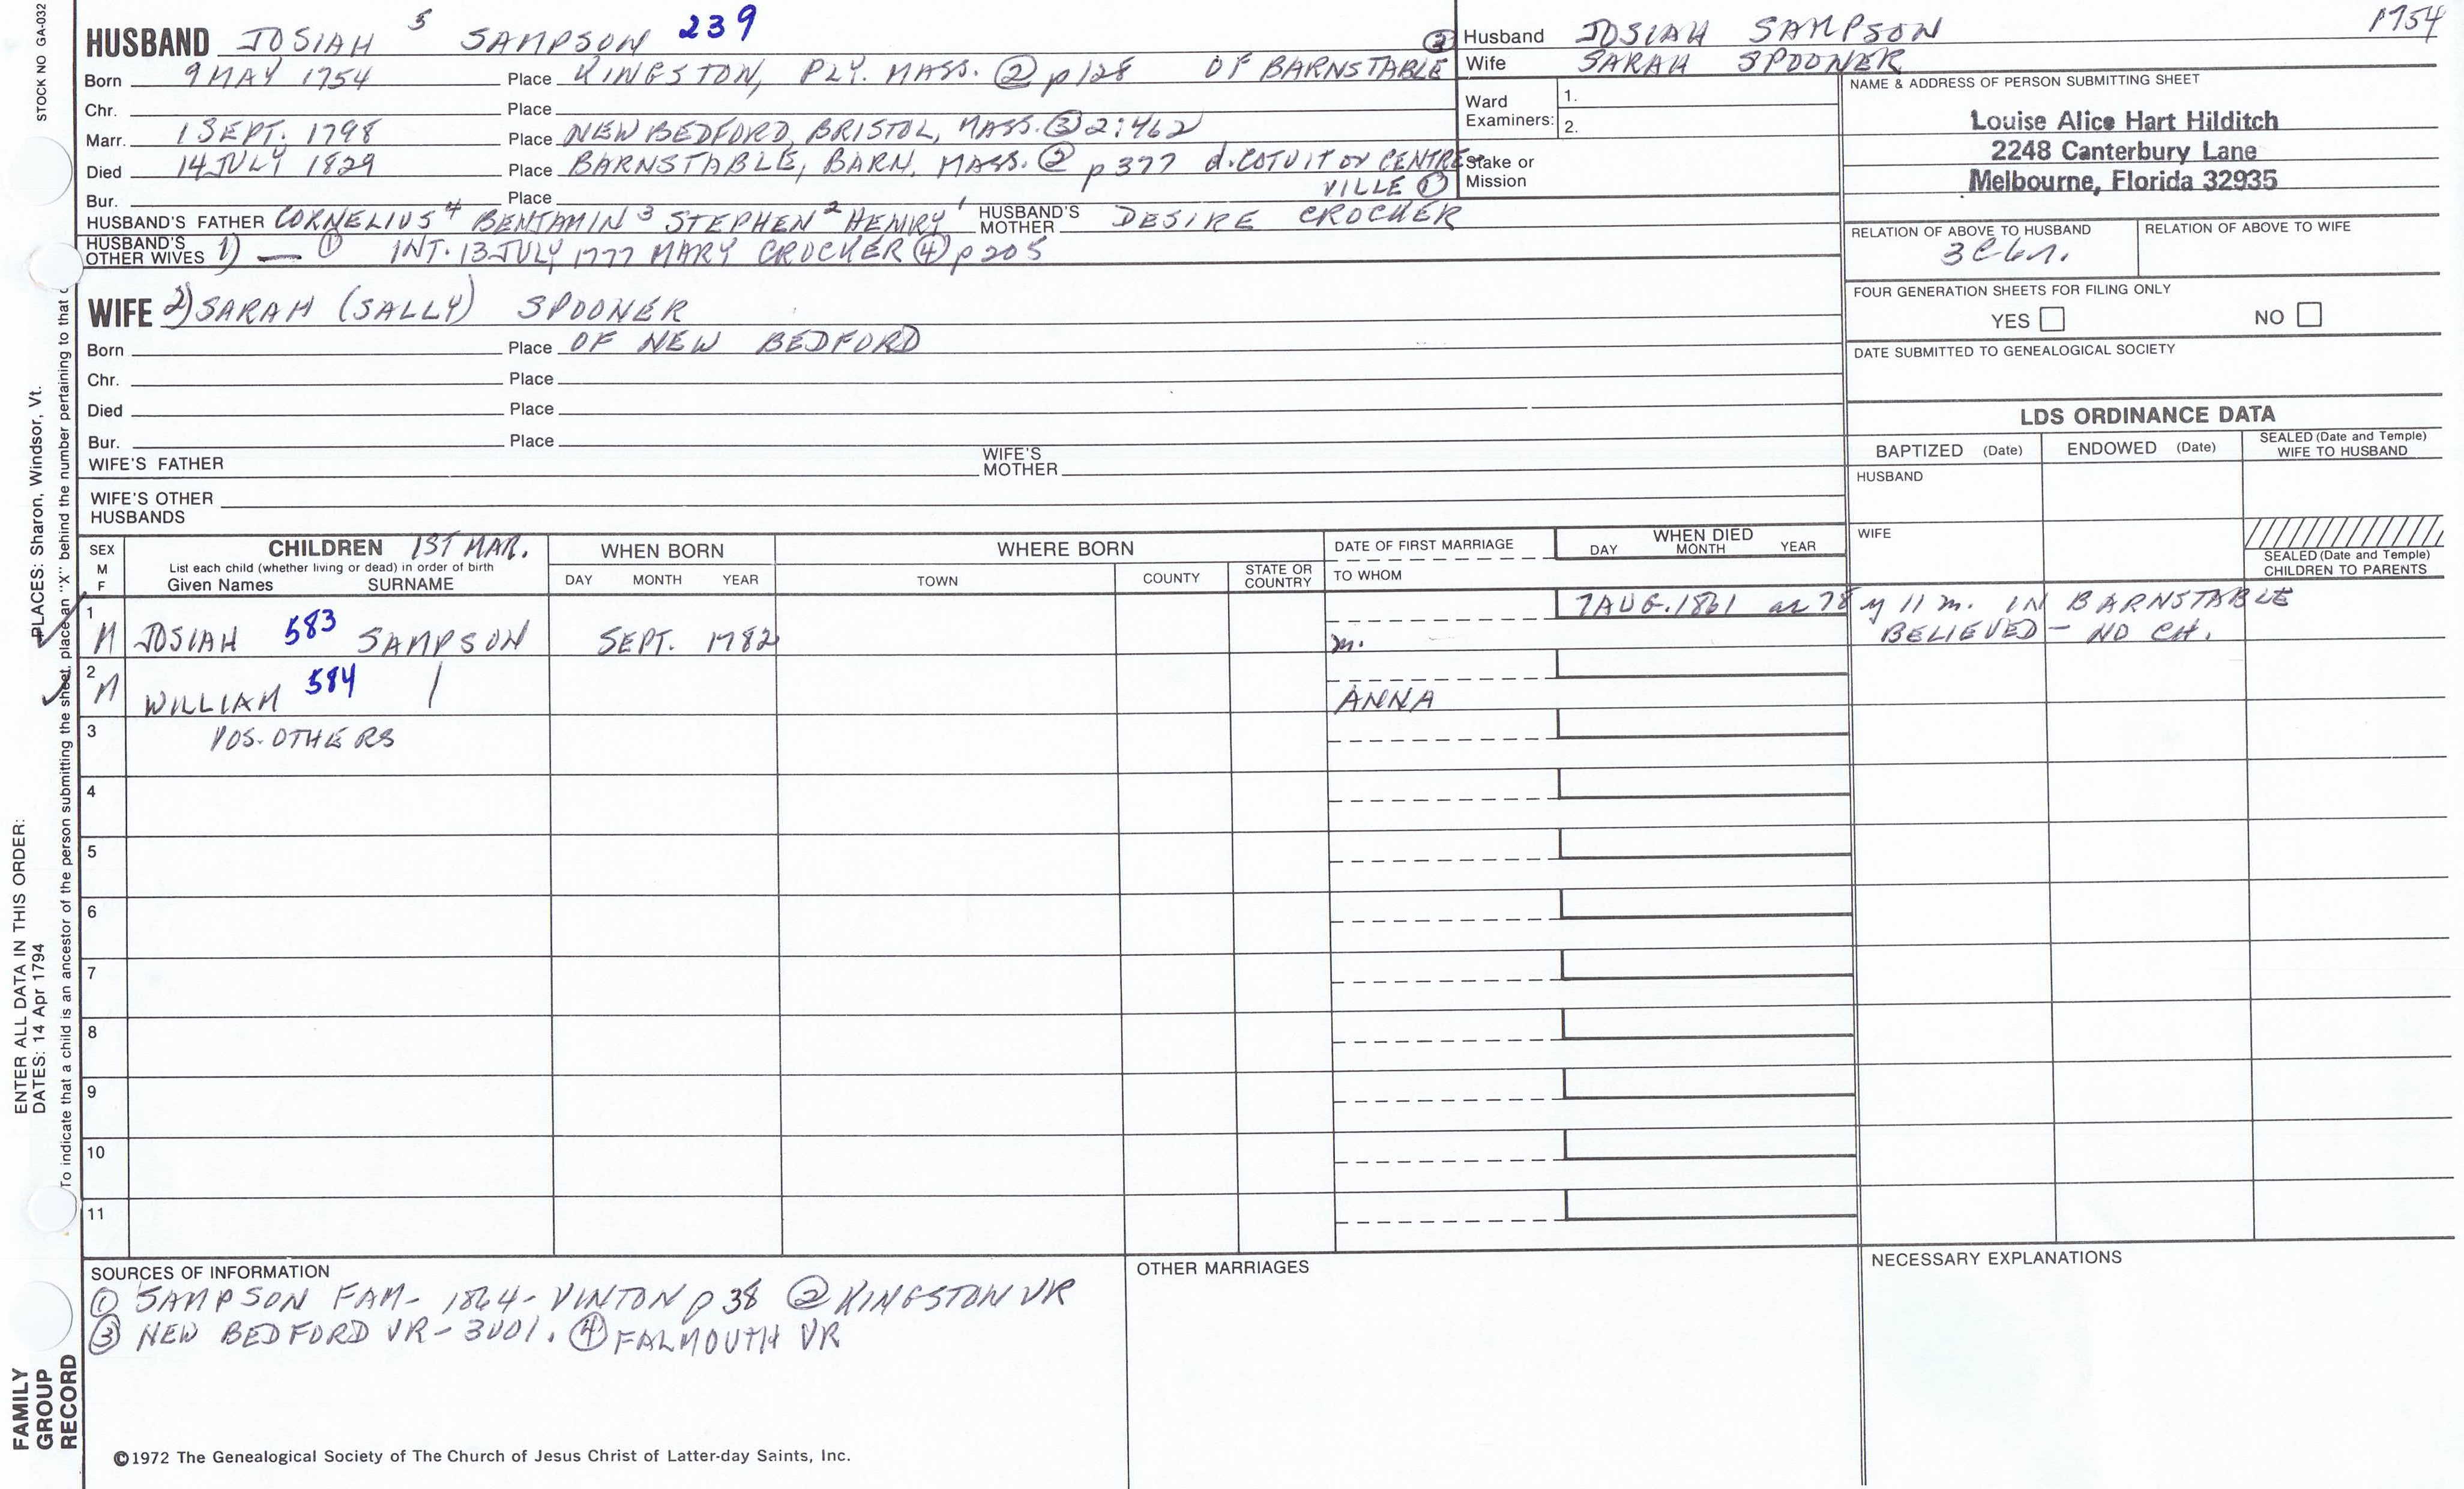 STOCK NO GA-032
HUSBAND JOSIAH 5 SAMPSON 239
Born 9 MAY 1754 Place KINGSTON, PLY. MASS. ② p 128 OF BARNSTABLE ③
Chr. Place
Marr. 1 SEPT. 1798 Place NEW BEDFORD, BRISTOL, MASS. ③ 2:462
Died 14 JULY 1829 Place BARNSTABLE, BARN. MASS. ② p 377 d. COTUIT or CENTRE
VILLE ①
Bur. Place
HUSBAND'S FATHER CORNELIUS 4 BENJAMIN 3 STEPHEN 2 HENRY 1 HUSBAND'S MOTHER DESIRE CROCKER
HUSBAND'S OTHER WIVES 1) — ① INT. 13 JULY 1777 MARY CROCKER ④ p 205
WIFE 2) SARAH (SALLY) SPOONER
Born Place OF NEW BEDFORD
Chr. Place
Died Place
Bur. Place
WIFE'S FATHER WIFE'S MOTHER
WIFE'S OTHER HUSBANDS
Husband JOSIAH SAMPSON 1754
Wife SARAH SPOONER
Ward Examiners: 1.
2.
Stake or Mission
NAME & ADDRESS OF PERSON SUBMITTING SHEET
Louise Alice Hart Hilditch
2248 Canterbury Lane
Melbourne, Florida 32935
RELATION OF ABOVE TO HUSBAND RELATION OF ABOVE TO WIFE
FOUR GENERATION SHEETS FOR FILING ONLY
YES NO
DATE SUBMITTED TO GENEALOGICAL SOCIETY
LDS ORDINANCE DATA
BAPTIZED (Date) ENDOWED (Date) SEALED (Date and Temple) WIFE TO HUSBAND
HUSBAND
WIFE
SEALED (Date and Temple) CHILDREN TO PARENTS
SEX M F
CHILDREN 1ST MAR.
List each child (whether living or dead) in order of birth
Given Names SURNAME
WHEN BORN
DAY MONTH YEAR
WHERE BORN
TOWN COUNTY STATE OR COUNTRY
DATE OF FIRST MARRIAGE
TO WHOM
WHEN DIED
DAY MONTH YEAR
1 7 AUG. 1861 ae 78 y 11 m. IN BARNSTABLE
M JOSIAH 583 SAMPSON SEPT. 1782 m. BELIEVED - NO CH.
2
M WILLIAM 584 / ANNA
3 POS. OTHERS
4
5
6
7
8
9
10
11
SOURCES OF INFORMATION
① SAMPSON FAM - 1864 - VINTON p 38 ② KINGSTON VR
③ NEW BEDFORD VR - 3 vol. ④ FALMOUTH VR
OTHER MARRIAGES
NECESSARY EXPLANATIONS
©1972 The Genealogical Society of The Church of Jesus Christ of Latter-day Saints, Inc.
ENTER ALL DATA IN THIS ORDER:
DATES: 14 Apr 1794 PLACES: Sharon, Windsor, Vt.
To indicate that a child is an ancestor of the person submitting the sheet, place an "X" behind the number pertaining to that
FAMILY
GROUP
RECORD